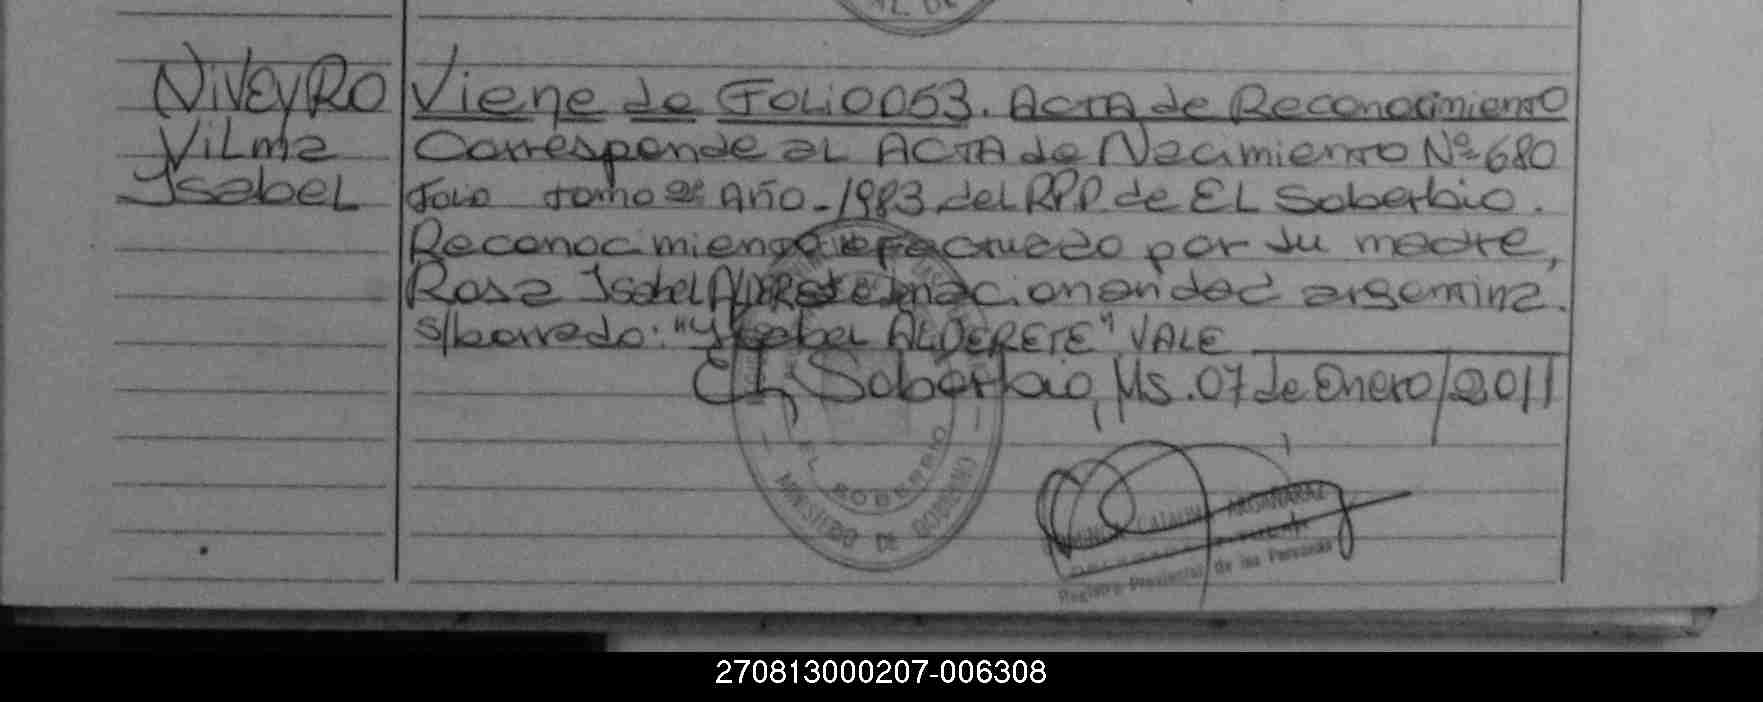 NiVeyRo
Vilma
Isabel
Viene de Folio 053. Acta de Reconocimiento
Corresponde al ACTA de Nacimiento Nº 680
Folio tomo 2º Año - 1983 del RPP de EL Soberbio.
Reconocimiento efectuado por su madre,
Rosa Isabel ALDERETE nacionalidad argentina.
s/borrado: "Ysabel ALDERETE" VALE
EL Soberbio, Ms. 07 de Enero/2011
EL SOBERBIO
MINISTERIO DE GOBIERNO
CATALINA ARGAÑARAZ
Registro Provincial de las Personas
270813000207-006308